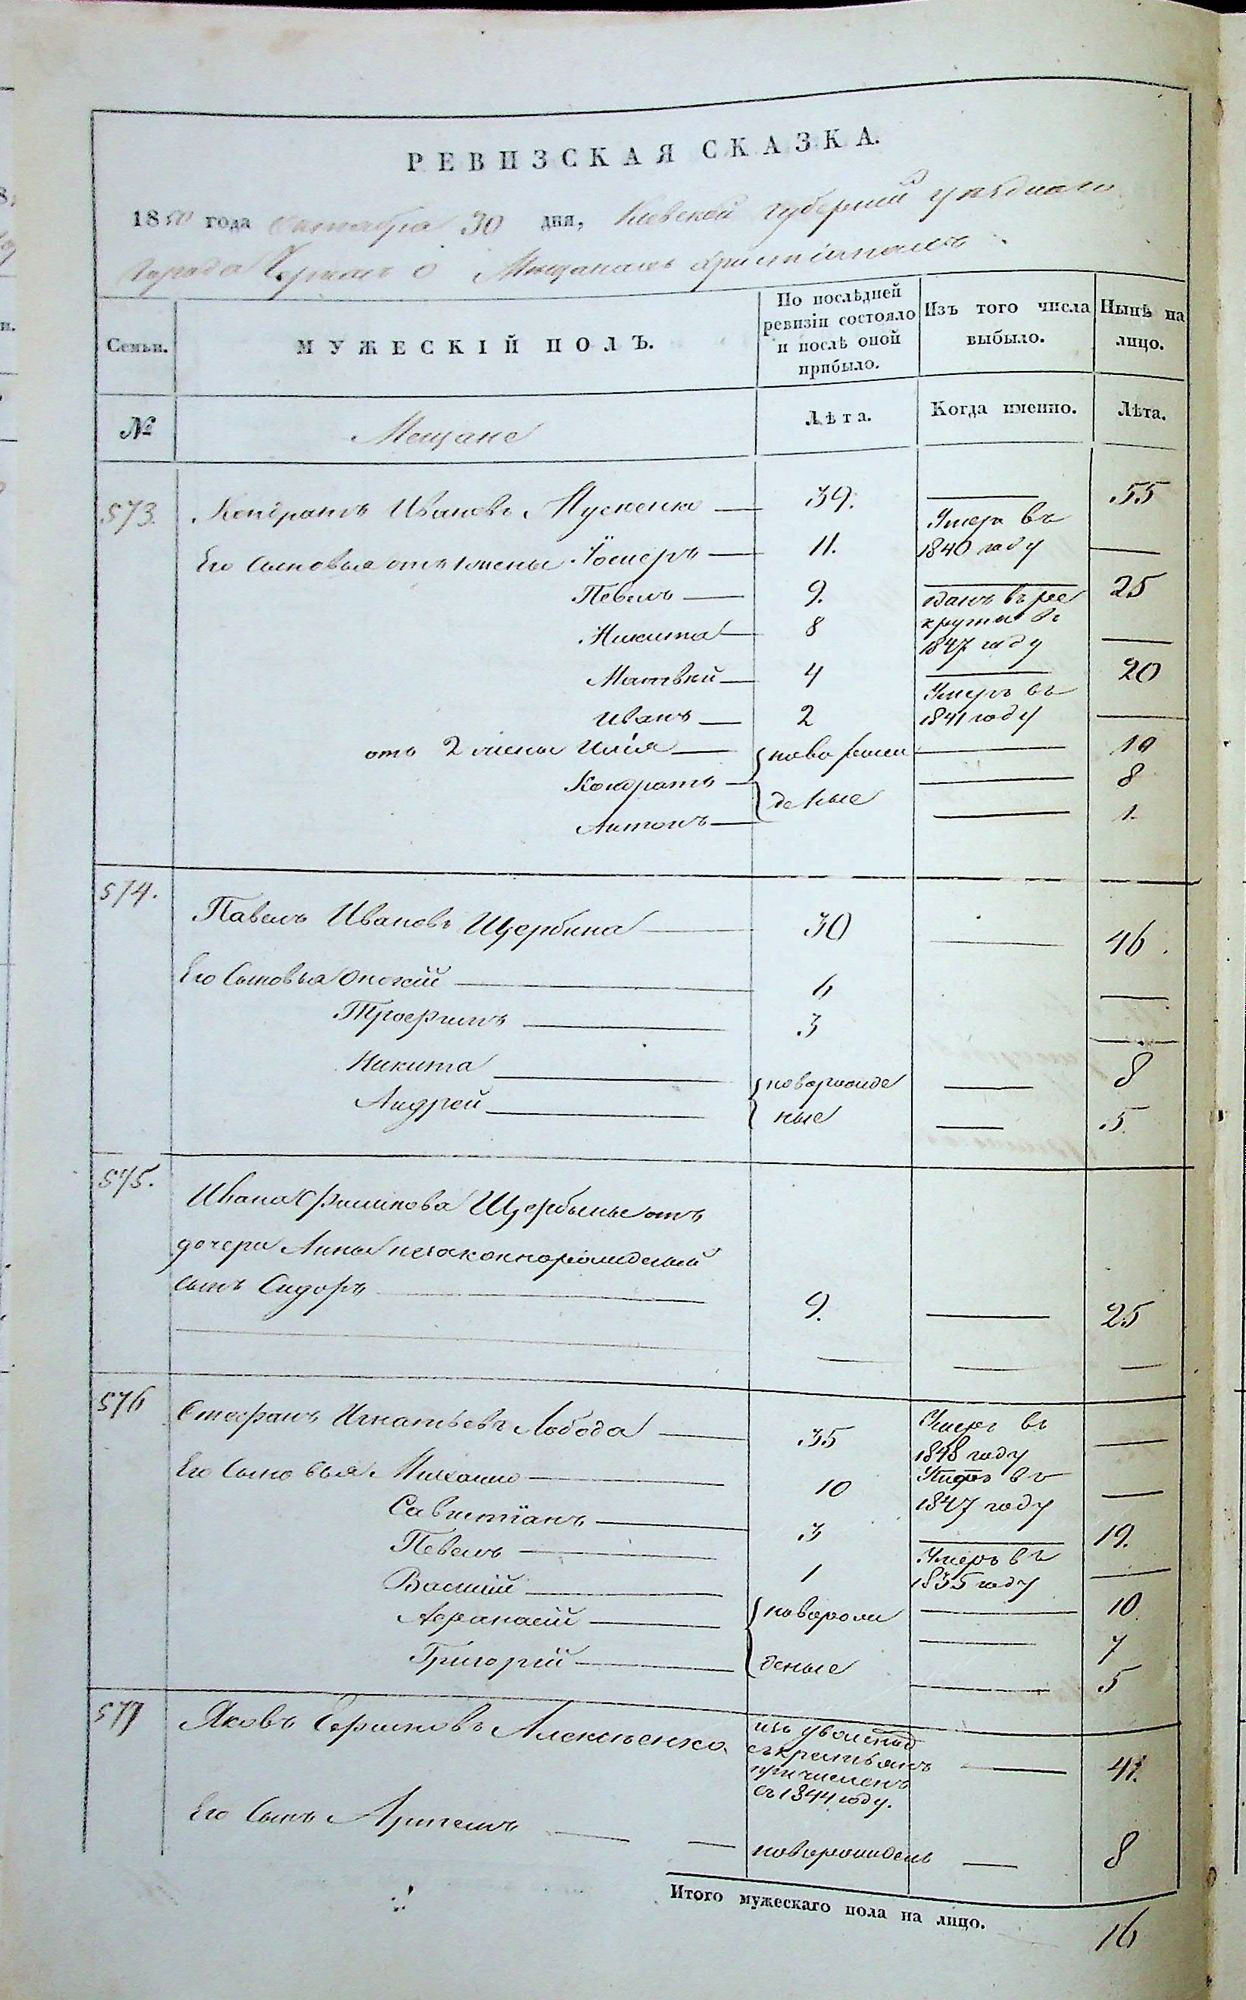 РЕВИЗСКАЯ СКАЗКА.
1850 года Октября 30 дня, Киевской губернии уѣзднаго
города Черкасъ о Мѣщанахъ христіанахъ
Семьи. МУЖЕСКІЙ ПОЛЪ. По послѣдней ревизіи состояло и послѣ оной прибыло. Изъ того числа выбыло. Нынѣ на лицо.
№ Мещане Лѣта. Когда именно. Лѣта.
573. Кондратъ Ивановъ 39. 55
Его сыновья отъ 1 жены 11. Умеръ въ 1840 году
Павелъ 9. 25
Никита 8 зданъ въ рекруты въ 1847 году
Матвѣй 4 20
Иванъ 2 Умеръ въ 1841 году
отъ 2 жены Илія новорожденные 10
Кондратъ 8
Антонъ 1.
574. Павелъ Ивановъ Щербина 30 46.
Его Сыновья 6
Трофимъ 3
Никита новорожденые 8
Андрей 5.
575. Ивана Щербины отъ
дочери Анны незаконнорожденый
сынъ Сидоръ 9. 25
576 Стефанъ Игнатьевъ Лобода 35 Умеръ въ 1848 году
Его Сыновья Михаило 10 Умеръ въ 1847 году
Савистіанъ 3 19.
Павелъ 1 Умеръ въ 1835 году
Василій новорожденые 10.
Афанасій 7
Григорій 5
577 Яковъ Алексѣенко изъ крестьянъ причисленъ въ 1844 году. 41.
Его Сынъ Артемъ новорожденъ 8
Итого мужескаго пола на лицо. 16